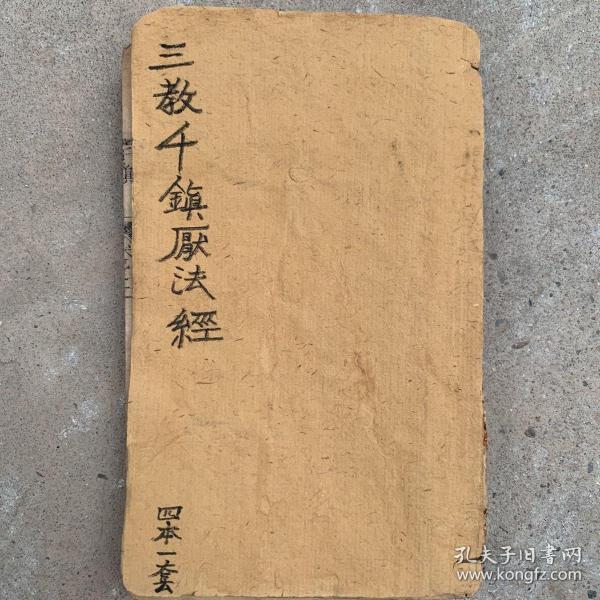 三教千鎮厭法經
四本一套
孔夫子旧书网
www.kongfz.com